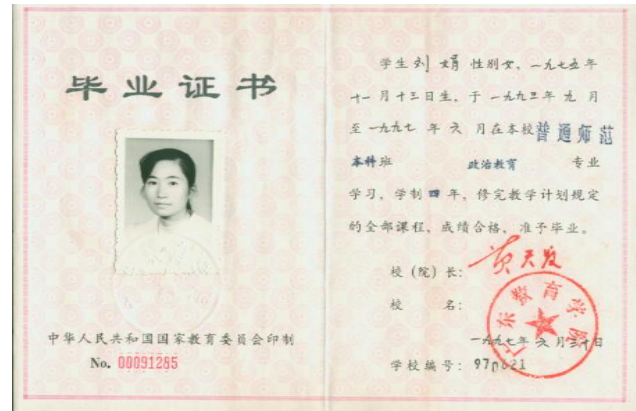 毕业证书
中华人民共和国国家教育委员会印制
No. 00091285
学生刘娟性别女、一九七五年
十一月十三日生，于一九九三年九月
至一九九七年六月在本校普通师范
本科班 政治教育 专业
学习，学制四年，修完教学计划规定
的全部课程，成绩合格，准予毕业。
校（院）长：
校 名：
广东教育学院
一九九七年六月三十日
学校编号：97p621